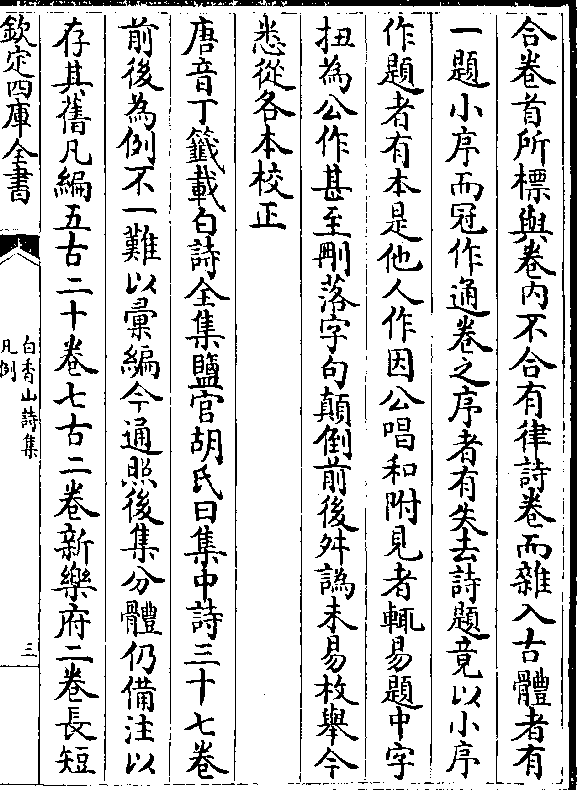 合卷首所標與卷内不合有律詩卷而雜入古體者有
一題小序而冠作通卷之序者有失去詩題竟以小序
作題者有本是他人作因公唱和附見者輒易題中字
扭為公作甚至刪落字句顛倒前後舛譌未易枚舉今
悉從各本校正
唐音丁籖載白詩全集鹽官胡氏曰集中詩三十七卷
前後為例不一難以彙編今通照後集分體仍備注以
存其舊凡編五古二十卷七古二卷新樂府二卷長短
欽定四庫全書
白香山詩集
凡例
三